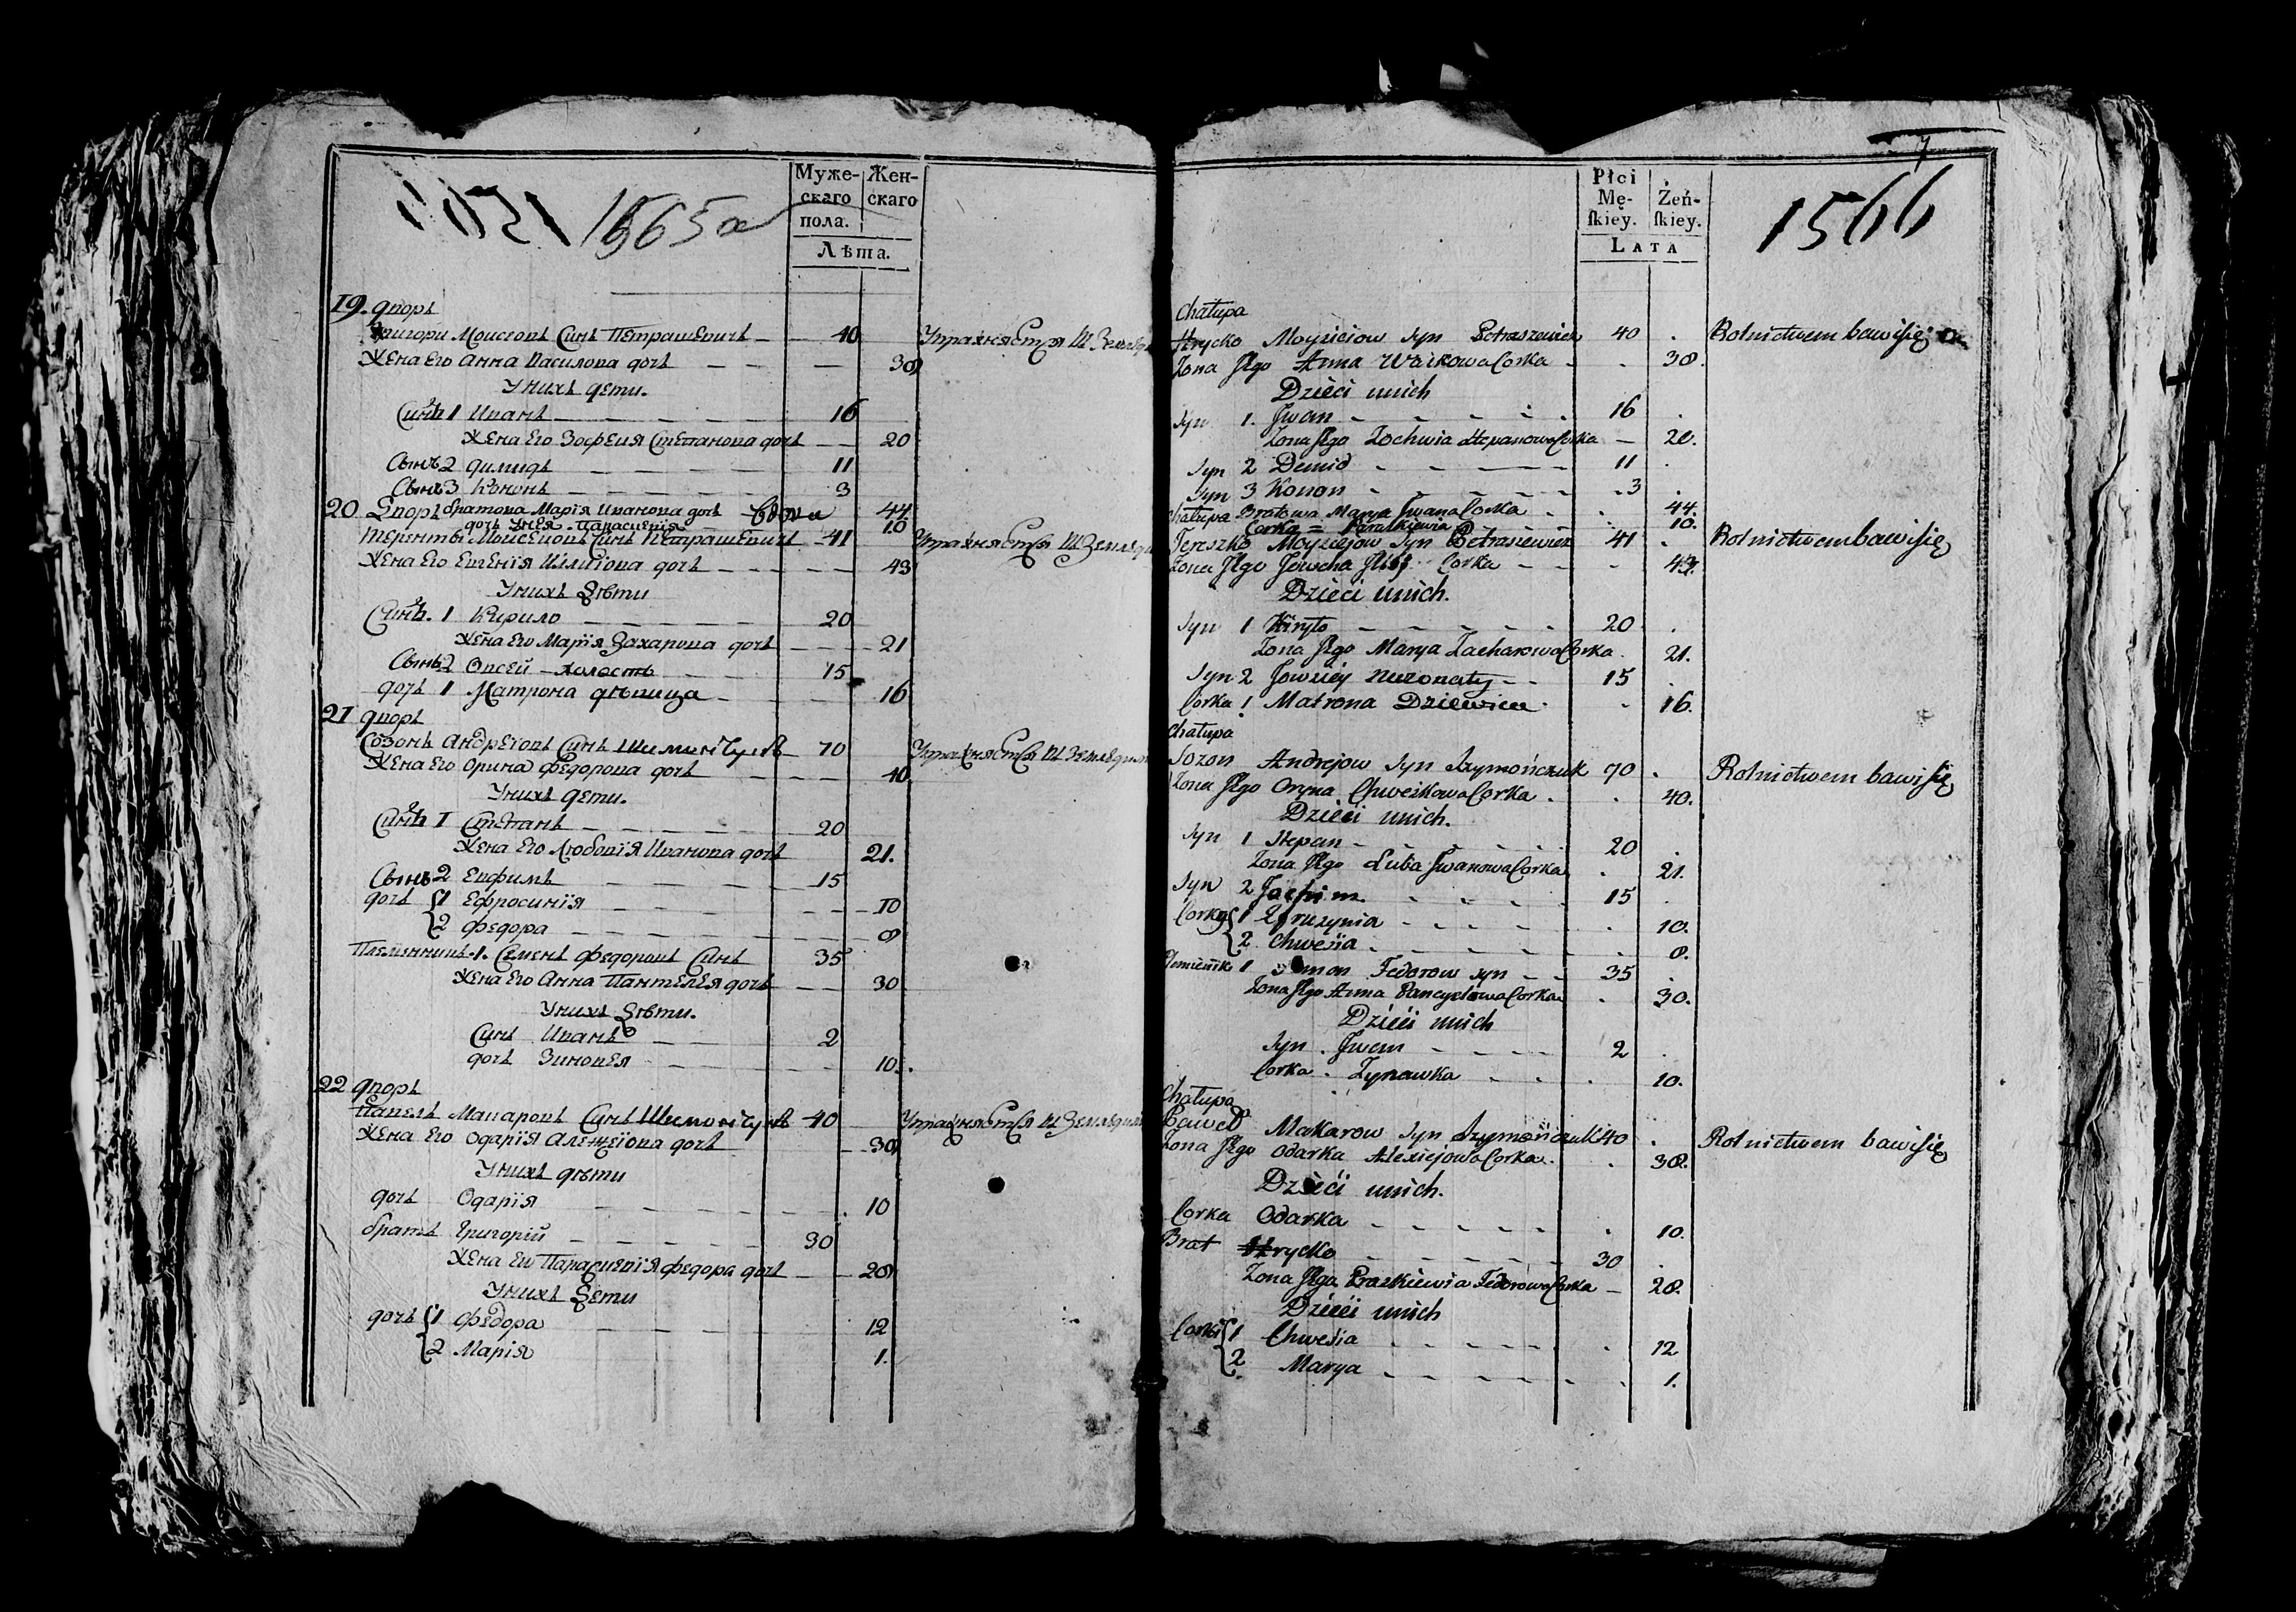 1565a
Муже-
скаго
пола.
Жен-
скаго
Лѣта.
19. дворъ
Григори Моисеовъ Синъ Петрашевичъ 40
Жена Его Анна Василова дочь 30
Унихъ дети.
Синъ 1 Иванъ 16
Жена Его Зофеия Степанова дочь 20
Сынъ 2 Дилидъ 11
Сынъ 3 Кононъ 3
20 Дворъ братова Марія Иванова дочь Вдова 44
дочь Унея Параскевія 10
Теренты Моисеиовъ Синъ Петрашевичъ 41
Жена Его Евгенія дочь 43
Унихъ Дѣти
Синъ. 1 Кирило 20
Жена Его Марія Захарова дочь 21
Сынъ 2 Овсей холостъ 15
дочь 1 Матрона дѣвица 16
21 дворъ
Созонъ Андреіовъ Синъ Шимончукъ 70
Жена Его Орина Федорова дочь 40
Унихъ дети.
Синъ 1 Степанъ 20
Жена Его Любовія Иванова дочь 21.
Сынъ 2 Евфимъ 15
дочь 1 Ефросинія 10
2 Федора 8
Племинникъ. 1. Семенъ Федоровъ Синъ 35
Жена Его Анна Пантелея дочь 30
Унихъ Дѣти.
Синъ Иванъ 2
дочь Зиновея 10.
22 дворъ
Павелъ Макаровъ Синъ Шимончукъ 40
Жена Его Одарія Алексеіова дочь 30
Унихъ дѣти
дочь Одарія 10
братъ Григорій 30
Жена Его Параскевія Федора дочь 28
Унихъ Дети
дочь 1 Федора 12
2 Марія 1.
7
1566
Płci
Mę-
skiey.
Żeń-
skiey.
LATA
Chałupa
Hrycko Moyziciow Syn Petraszewicz 40 Rolnictwem bawi się
Zona Jego Anna Waskowa Corka 30.
Dzieci unich
Syn 1. Jwan 16
Zona Jego Zochwia Stepanowa Corka 20.
Syn 2 Demid 11
Syn 3 Konon 3
Chałupa Bratowa Marya Jwana Corka 44.
Corka = Paraskiewia 10.
Tereszko Moyziejow Syn Petraszewicz 41 Rolnictwem bawi się
Zona Jego Jewcha Corka 43.
Dzieci unich.
Syn 1 Kiryło 20
Zona Jego Marya Zacharowa Corka 21.
Syn 2 Jowsiey niezonaty 15
Corka 1 Matrona Dziewica 16.
Chałupa
Sozon Andrejow Syn Szymończuk 70 Rolnictwem bawi się
Zona Jego Oryna Chweskowa Corka 40.
Dzieci unich.
Syn 1 Stepan 20
Zona Jego Luba Jwanowa Corka 21.
Syn 2 Jachim 15
Corka 1 Efruzynia 10.
2 Chwesia 8.
1 Semon Fedorow Syn 35
Zona Jego Anna Corka 30.
Dzieci unich
Syn. Jwan 2
Corka. Zynawka 10.
Chałupa
Paweł Makarow Syn Szymończuk 40 Rolnictwem bawi się
Zona Jego Odarka Alexiejowa Corka. 30.
Dzieci unich.
Corka Odarka 10.
Brat Hrycko 30
Zona Jego Praskiewia Fedorowa Corka 28.
Dzieci unich
Corki 1 Chwesia 12
2 Marya 1.